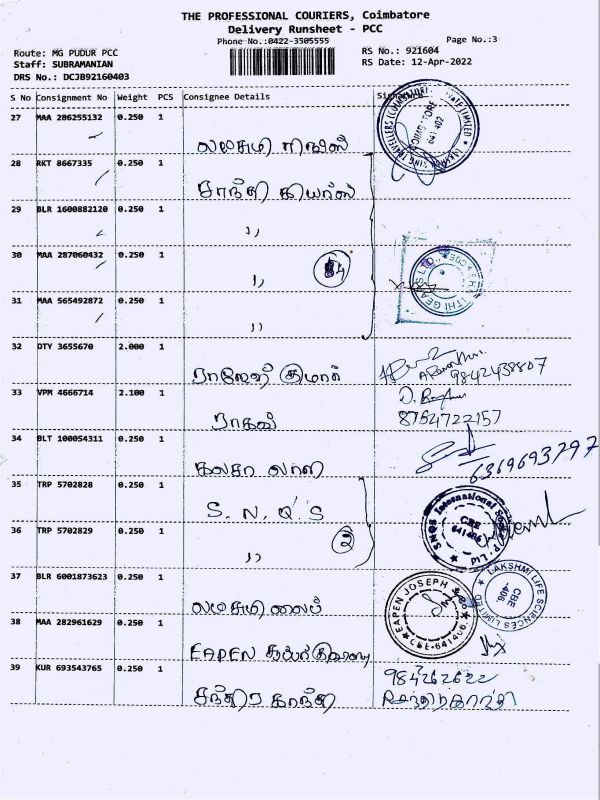 THE PROFESSIONAL COURIERS, Coimbatore
Delivery Runsheet - PCC
Phone No.:0422-3505555
Page No.:3
Route: MG PUDUR PCC
RS No.: 921604
Staff: SUBRAMANIAN
RS Date: 12-Apr-2022
DRS No.: DCJB92160403
S No Consignment No Weight PCS Consignee Details
27 MAA 286255132 0.250 1
28 RKT 8667335 0.250 1
சாந்தி கியர்ஸ்
29 BLR 1600882120 0.250 1
,,
30 MAA 287060432 0.250 1
,,
31 MAA 565492872 0.250 1
,,
32 DTY 3655670 2.000 1
ராஜேஷ் குமார்
9842438807
33 VPM 4666714 2.100 1
ராகவ்
8754722157
34 BLT 100054311 0.250 1
6369693797
35 TRP 5702828 0.250 1
S. N. Q. S
SNQS International Socks P Ltd
CBE
641406
36 TRP 5702829 0.250 1
,,
2
37 BLR 6001873623 0.250 1
லட்சுமி லைப்
LAKSHMI LIFE SCIENCES LIMITED
CBE
-406.
38 MAA 282961629 0.250 1
EAPEN
EAPEN JOSEPH
39 KUR 693543765 0.250 1
சந்திர காந்தி
984262622